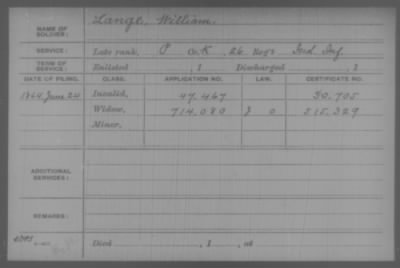 NAME OF SOLDIER: Lange, William.
SERVICE: Late rank, P Co. K, 26 Reg't Ind Inf.
TERM OF SERVICE: Enlisted , 1 Discharged , 1
DATE OF FILING. CLASS. APPLICATION NO. LAW. CERTIFICATE NO.
1864 June 24 Invalid, 47.467 30.705
Widow, 714.080 J 0 515.329
Minor,
ADDITIONAL SERVICES:
REMARKS:
Died , 1 , at